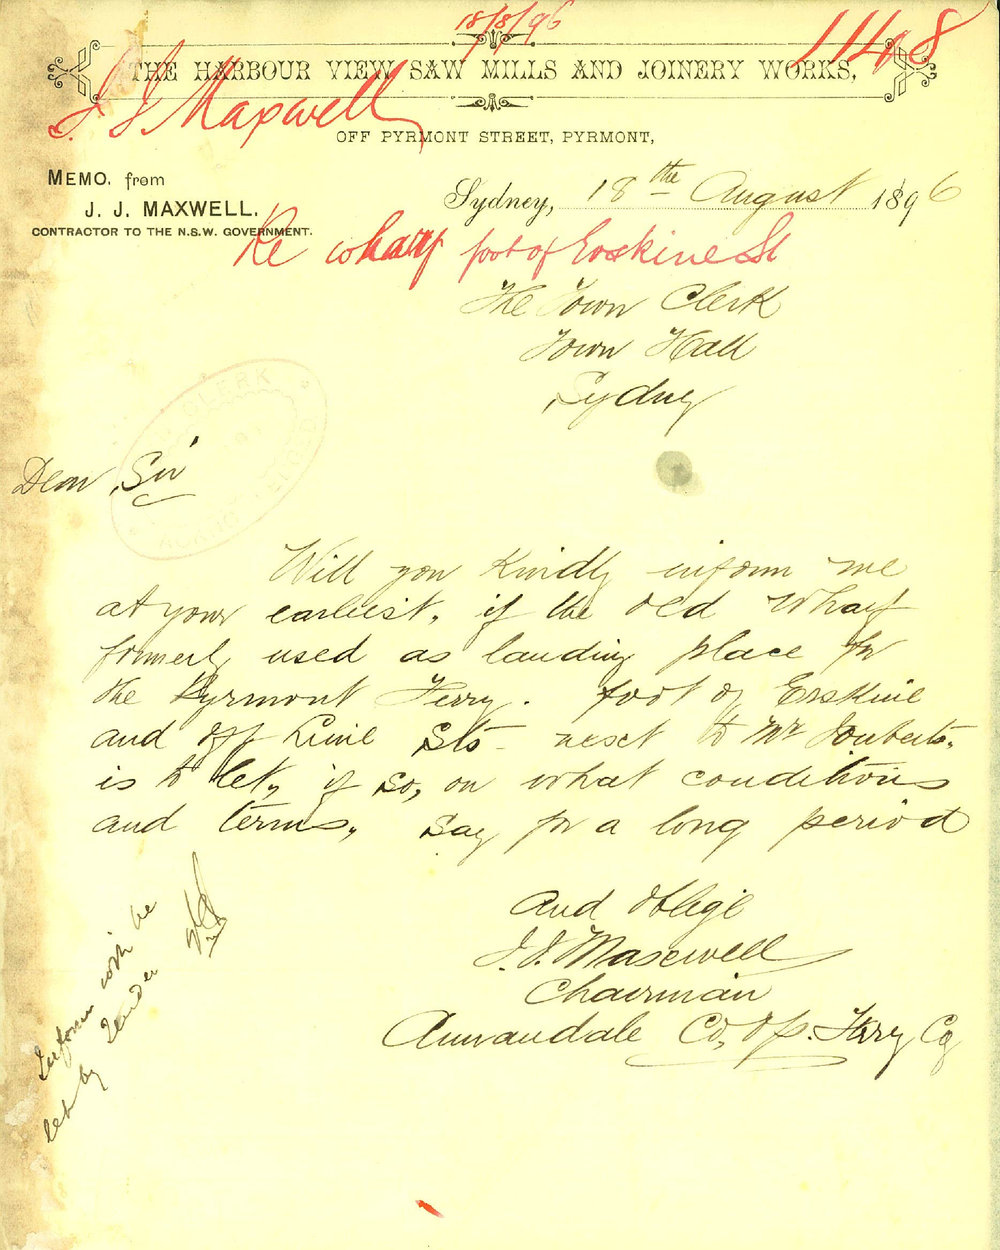 18/8/96
1148
J J Maxwell
THE HARBOUR VIEW SAW MILLS AND JOINERY WORKS,
OFF PYRMONT STREET, PYRMONT,
MEMO. from
J. J. MAXWELL,
CONTRACTOR TO THE N.S.W. GOVERNMENT.
Sydney, 18th August 1896
Re wharf foot of Erskine St
The Town Clerk
Town Hall
Sydney
CLERK
Dear Sir
Will you Kindly inform me
at your earliest, if the old wharf
formerly used as landing place for
the Pyrmont Ferry. foot of Erskine
and off Lime Sts next to Mr Jouberts.
is to let, if so, on what conditions
and terms, say for a long period
and oblige
J. J. Maxwell
Chairman
Annandale Co, Op. Ferry Co
Inform with be
let by Tender